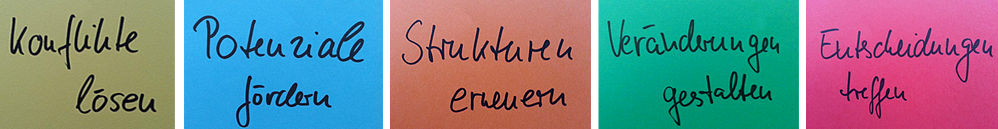 Konflikte
lösen
Potenziale
fördern
Strukturen
erneuern
Veränderungen
gestalten
Entscheidungen
treffen